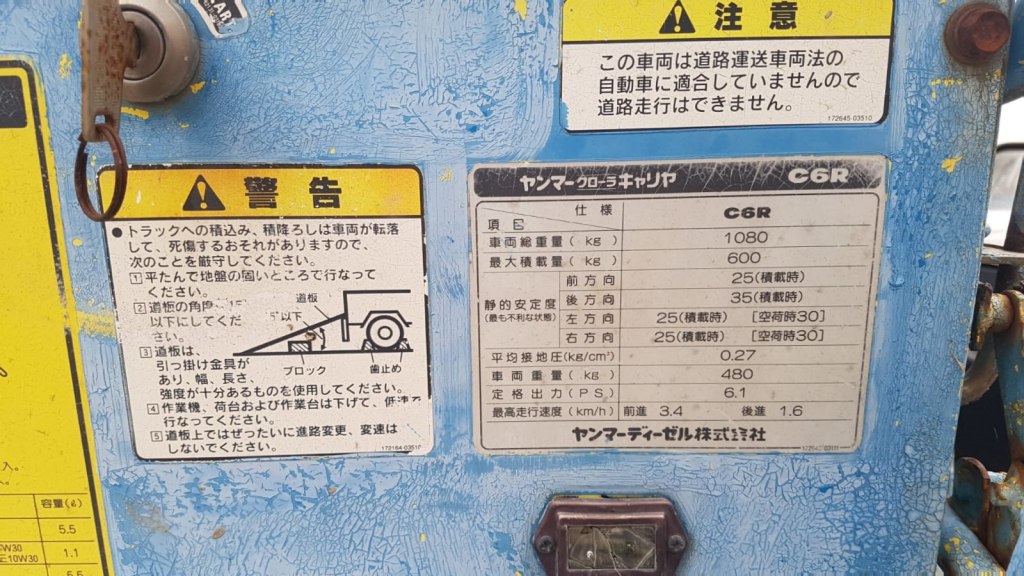 注意
この車両は道路運送車両法の
自動車に適合していませんので
道路走行はできません。
172645-03510
警告
● トラックへの積込み、積降ろしは車両が転落
して、死傷するおそれがありますので、
次のことを厳守してください。
1 平たんで地盤の固いところで行なって
ください。
2 道板の角度
以下にしてくだ
さい。
道板
以下
3 道板は、
引っ掛け金具が
あり、幅、長さ、
強度が十分あるものを使用してください。
ブロック 歯止め
4 作業機、荷台および作業台は下げて、低速で
行なってください。
5 道板上ではぜったいに進路変更、変速は
しないでください。
172164-03510
ヤンマークローラキャリヤ C6R
項目 仕様 C6R
車両総重量(kg) 1080
最大積載量(kg) 600
静的安定度
(最も不利な状態)
前方向 25(積載時)
後方向 35(積載時)
左方向 25(積載時) [空荷時30]
右方向 25(積載時) [空荷時30]
平均接地圧(kg/cm²) 0.27
車両重量(kg) 480
定格出力(PS) 6.1
最高走行速度(km/h) 前進 3.4 後進 1.6
ヤンマーディーゼル株式会社
入。
容量(ℓ)
5.5
W30
10W30 1.1
5.5